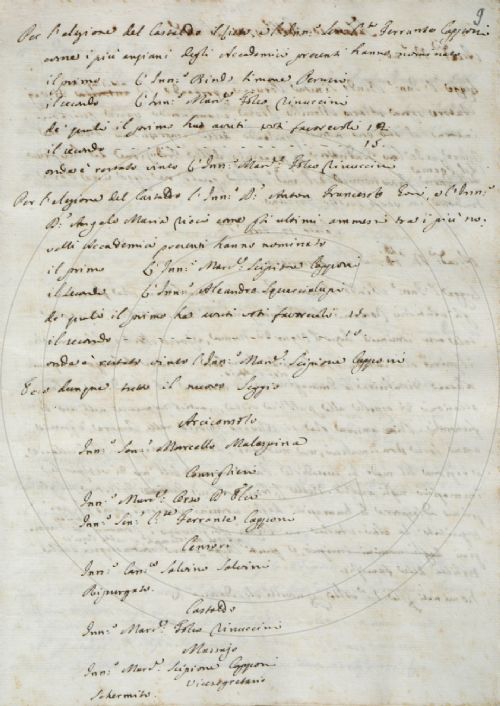 9
Per l'elezione del Castaldo l' e l'Inn.º Sen.e C.te Ferrante Capponi
come i più anziani degli Accademici presenti hanno nominato
il primo L'Inn.º Rind. Simone Peruzzi
il secondo L'Inn.º Mar.e Folco Rinuccini
de' quali il primo ha avuti voti favorevoli
il secondo 15.
onde è restato vinto l'Inn.º Mar.e Folco Rinuccini
Per l'elezione del l'Inn.º D.r Anton Francesco Gori, e l'Inn.º
D.r Angelo Maria Ricci come gli ultimi ammessi tra i più no-
velli Accademici presenti hanno nominato
il primo L'Inn.º Mar.e Scipione Capponi
il secondo L'Inn.º Aleandro Squarcialupi
de' quali il primo ha avuti voti favorevoli
il secondo
onde è restato vinto l'Inn.º Mar.e Scipione Capponi
Ecco dunque tutto il nuovo Seggio
Arciconsolo
Inn.º Sen.e Marcello Malaspina
Consiglieri
Inn.º Mar.e Corso
Inn.º Sen.e C.te Ferrante Capponi
Censori
Inn.º Can.co Salvino Salvini
Ripurgato.
Castaldo
Inn.º Mar.e Folco Rinuccini
Massajo
Inn.º Mar.e Scipione Capponi
Vicesegretario
Schermito.